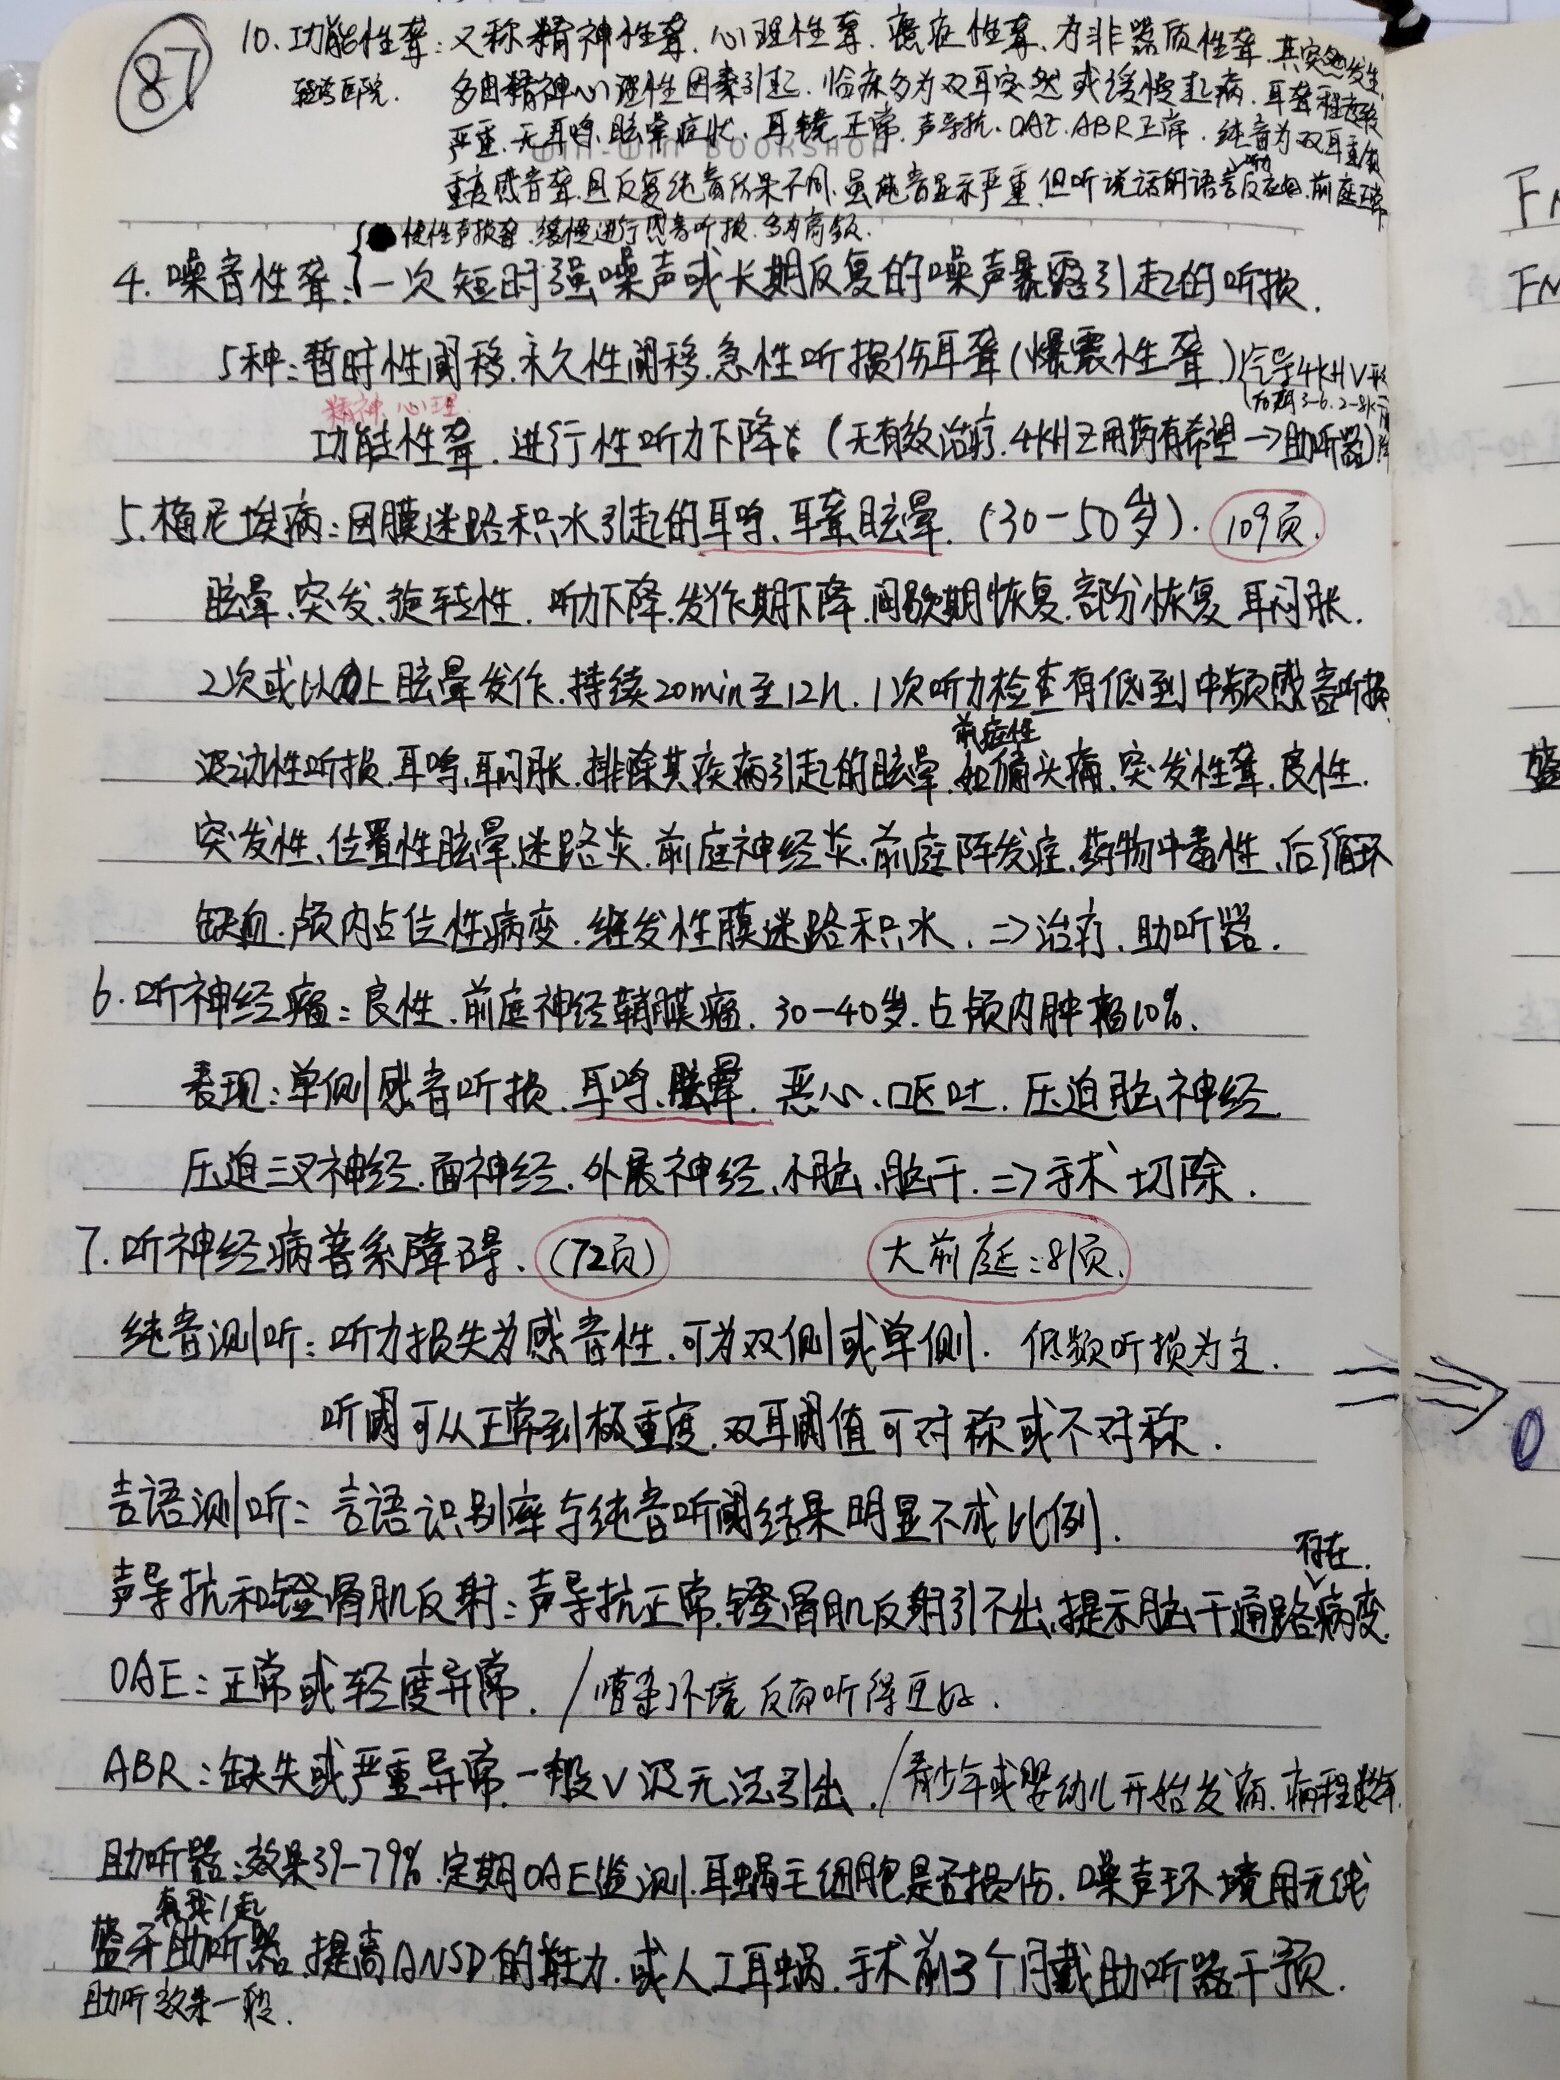 87
10. 功能性聋：又称精神性聋、心理性聋、癔症性聋、为非器质性聋、其突然发生、
转诊医院.
多由精神心理性因素引起. 临床多为双耳突然或缓慢起病、耳聋程度较
严重、无耳鸣、眩晕症状、耳镜正常、声导抗、OAE、ABR正常、纯音为双耳重/极
重度感音聋、且反复纯音结果不同、虽纯音显示严重、但听说话的语言反应 前庭正常
WIN-WIN BOOKSHOP
慢性声损聋、缓慢进行感音听损、多为高频.
4. 噪音性聋：一次短时强噪声或长期反复的噪声暴露引起的听损.
5种：暂时性阈移、永久性阈移、急性听损伤耳聋(爆震性聋)
气导4KHV形
后期3-6、2-8k
精神、心理
功能性聋、进行性听力下降 (无有效治疗、4KHZ用药有希望→助听器)
5. 梅尼埃病：因膜迷路积水引起的耳鸣、耳聋、眩晕. (30-50岁). 109页.
眩晕、突发、旋转性、听力下降、发作期下降、间歇期恢复、部分恢复、耳闷胀.
2次或以上眩晕发作、持续20min至12h、1次听力检查有低到中频感音听损
波动性听损、耳鸣、耳闷胀、排除其疾病引起的眩晕、如前庭性偏头痛、突发性聋、良性
突发性、位置性眩晕、迷路炎、前庭神经炎、前庭阵发症、药物中毒性、后循环
缺血、颅内占位性病变、继发性膜迷路积水. ⇒治疗、助听器.
6. 听神经瘤：良性、前庭神经鞘膜瘤、30-40岁、占颅内肿瘤10%.
表现：单侧感音听损、耳鸣、眩晕、恶心、呕吐、压迫脑神经
压迫三叉神经、面神经、外展神经、小脑、脑干. ⇒手术切除.
7. 听神经病普系障碍、(72页) 大前庭：81页.
纯音测听：听力损失为感音性、可为双侧或单侧. 低频听损为主.
听阈可从正常到极重度、双耳阈值可对称或不对称.
言语测听：言语识别率与纯音听阈结果明显不成比例.
声导抗和镫骨肌反射：声导抗正常、镫骨肌反射引不出、提示脑干通路存在病变.
OAE：正常或轻度异常. / 嘈杂环境反而听得更好.
ABR：缺失或严重异常、一般V波无法引出. / 青少年或婴幼儿开始发病、病程数年.
助听器：效果39-79%、定期OAE监测、耳蜗毛细胞是否损伤、噪声环境用无线
蓝牙助听器、提高ANSD的能力、或人工耳蜗、手术前3个月戴助听器干预.
助听效果一般.